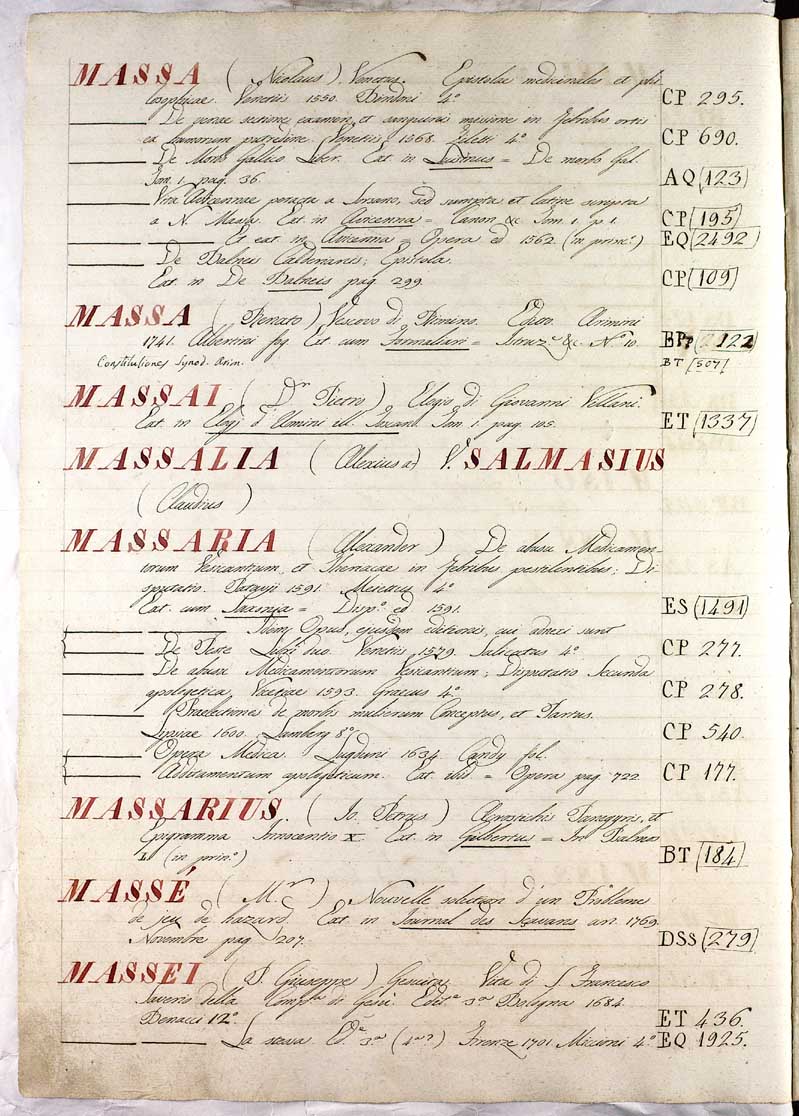 MASSA ( Nicolaus ) Venetus. Epistolae medicinales et phi
losophicae. Venetiis 1550. Bindoni 4.° CP 295.
De venae sectione, examen, et sanguinis missione in febribus ortis
ex humorum putredine. Venetiis 1568. Ziletti 4.° CP 690.
De Morbo Gallico Liber. Ext. in Luisinus = De morbo Gal.
Tom. 1. pag. 36. AQ 123
Vita Avicennae peracta a Sorsano, sed sumpta et latine scripta
a N. Massa. Ext. in Avicenna = Canon &c. Tom. 1. p. 1. CP 195
Et ext. in Avicenna = Opera ed 1562. (in princ.°) EQ 2492
De Balneis Calderianis; Epistola.
Ext. in De Balneis pag. 299. CP 109
MASSA ( Renato ) Vescovo di Rimino. Editto. Arimini
1741. Albertini fog. Ext. cum Formulari = Istruz.e &c. N.° 10. 122
Constitutiones Synod. Arim. BT 507
MASSAI ( D.r Pietro ) Elogio di Giovanni Vellani.
Ext. in Elogj d'Uomini ill. Toscani. Tom. 1. pag. 105. ET 1337
MASSALIA ( Alexius a ) V. SALMASIUS
( Claudius )
MASSARIA ( Alexander ) De abusu Medicamen-
torum Vesicantium, et Theriacae in febribus pestilentibus; Di
sputatio. Patavii 1591. Meietus 4.°
Ext. cum = Disp.° ed 1591. ES 1491
Idem Opus, ejusdem editionis, cui adnexi sunt
De Peste Libri duo. Venetiis 1579. Salicatus 4.° CP 277.
De abusu Medicamentorum Vesicantium; Disputatio Secunda
apologetica. Vicetiae 1593. Graecus 4.° CP 278.
Praelectiones de morbis mulierum Conceptus, et Partus.
Lipsiae 1600. Lamberg 8.° CP 540.
Opera Medica. Lugduni 1634. Candy fol.
Additamentum apologeticum. Ext. ibid = Opera pag. 722. CP 177.
MASSARIUS ( Io. Petrus ) Acrostichis Panegyris, et
Epigramma Innocentio X. Ext. in Gilbertus = In Balneas
L (in prin.°) BT 184
MASSÉ ( M.r C. ) Nouvelle solution d'un Problème
de jeu de hazard. Ext. in Journal des Sçavans an. 1769.
Novembre pag 207. DSS 279
MASSEI ( P. Giuseppe ) Gesuita. Vita di S. Francesco
Saverio della Comp.a di Gesù. Ediz.e 3.a Bologna 1684.
Benacci 12.° ET 436.
La stessa Ed.e 3.a (4.a?) Firenze 1701. Miccioni 4.° EQ 1925.